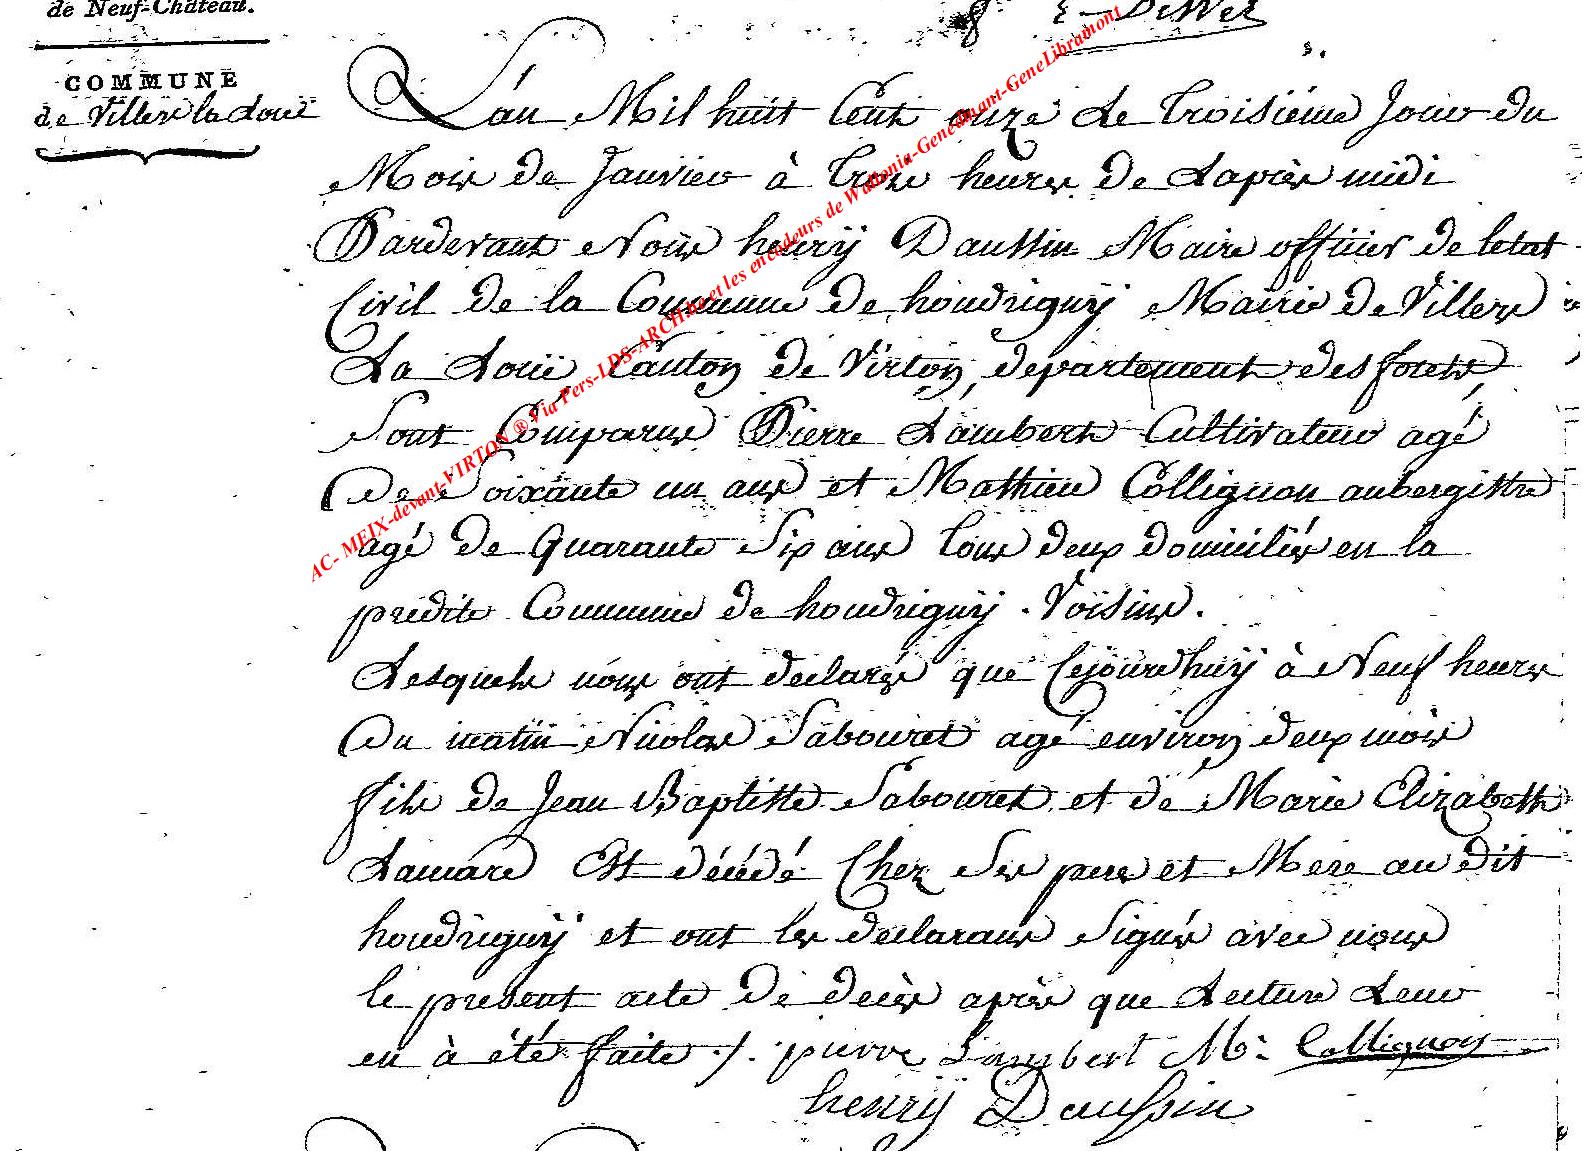 de Neuf-Château.
COMMUNE
de Villers la Louë
E DeWez
L'an Mil huit Cent onze Le Troisiéme Jour du
Mois de Janvier à Trois heures de Laprès midi
Pardevant Nous henrÿ Daussin Maire officier de letat
Civil de la Commune de houdrignÿ Mairie de Villers
La Louë, Canton de Virton, departement des forets,
Sont Comparus Pierre Lambert Cultivateur agé
De Soixante un ans et Mathieu Collignon aubergiste
agé de Quarante Six ans Tous deux domiciliés en la
prédite Commune de houdrignÿ . Voisins .
Lesquels nous ont declarés que Cejourdhuÿ à Neuf heures
Du matin Nicolas Sabouret agé environ deux mois
fils de Jean Baptiste Sabouret et dé Marie Elizabeth
Lamard Est décédé Chez Ses pere et Mere au dit
houdrignÿ et ont les declarans Signés avec nous
le present acte de decès après que Lecture Leur
en à été faite ./. pierre Lambert M: Collignon
henrÿ Daussin
AC- MEIX-devant-VIRTON ® Via Pers-LDS-ARCH.be et les encodeurs de Wallonia-Genedinant-GeneLibramont